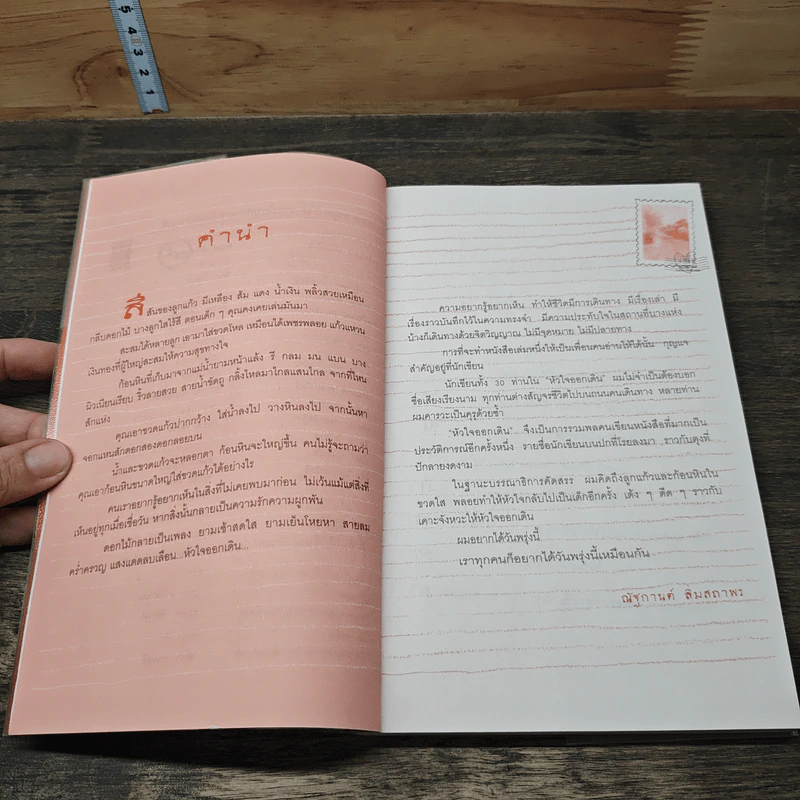 5
4
3
2
1
คำนำ
สีสันของลูกแก้ว มีเหลือง ส้ม แดง น้ำเงิน พลิ้วสวยเหมือน
กลีบดอกไม้ บางลูกใสไร้สี ตอนเด็ก ๆ คุณคงเคยเล่นมันมา
สะสมได้หลายลูก เอามาใส่ขวดโหล เหมือนได้เพชรพลอย แก้วแหวน
เงินทองที่ผู้ใหญ่สะสมให้ความสุขทางใจ
ก้อนหินที่เก็บมาจากแม่น้ำยามหน้าแล้ง รี กลม มน แบน บาง
ผิวเนียนเรียบ ริ้วลายสวย สายน้ำขัดถู กลิ้งไหลมาไกลแสนไกล จากที่ไหน
สักแห่ง
คุณเอาขวดแก้วปากกว้าง ใส่น้ำลงไป วางหินลงไป จากนั้นหา
จอกแหนสักดอกสองดอกลอยบน
น้ำและขวดแก้วจะหลอกตา ก้อนหินจะใหญ่ขึ้น คนไม่รู้จะถามว่า
คุณเอาก้อนหินขนาดใหญ่ใส่ขวดแก้วได้อย่างไร
คนเราอยากรู้อยากเห็นในสิ่งที่ไม่เคยพบมาก่อน ไม่เว้นแม้แต่สิ่งที่
เห็นอยู่ทุกเมื่อเชื่อวัน หากสิ่งนั้นกลายเป็นความรักความผูกพัน
ดอกไม้กลายเป็นเพลง ยามเช้าสดใส ยามเย็นโหยหา สายลม
คร่ำครวญ แสงแดดลบเลือน...หัวใจออกเดิน...
ความอยากรู้อยากเห็น ทำให้ชีวิตมีการเดินทาง มีเรื่องเล่า มี
เรื่องราวบันทึกไว้ในความทรงจำ มีความประทับใจในสถานที่บางแห่ง
บ้างก็เดินทางด้วยจิตวิญญาณ ไม่มีจุดหมาย ไม่มีปลายทาง
การที่จะทำหนังสือเล่มหนึ่งให้เป็นเพื่อนคนอ่านให้ได้นั้น กุญแจ
สำคัญอยู่ที่นักเขียน
นักเขียนทั้ง 30 ท่านใน "หัวใจออกเดิน" ผมไม่จำเป็นต้องบอก
ชื่อเสียงเรียงนาม ทุกท่านต่างสัญจรชีวิตไปบนถนนคนเดินทาง หลายท่าน
ผมคารวะเป็นครูด้วยซ้ำ
"หัวใจออกเดิน" จึงเป็นการรวมพลคนเขียนหนังสือที่มากเป็น
ประวัติการณ์อีกครั้งหนึ่ง รายชื่อนักเขียนบนปกที่โรยลงมา ราวกับตุงที่
ปักลายงดงาม
ในฐานะบรรณาธิการคัดสรร ผมคิดถึงลูกแก้วและก้อนหินใน
ขวดใส พลอยทำให้หัวใจกลับไปเป็นเด็กอีกครั้ง เต้ง ๆ ตึด ๆ ราวกับ
เคาะจังหวะให้หัวใจออกเดิน
ผมอยากได้วันพรุ่งนี้
เราทุกคนก็อยากได้วันพรุ่งนี้เหมือนกัน
ณัฐกานต์ ลิ่มสถาพร